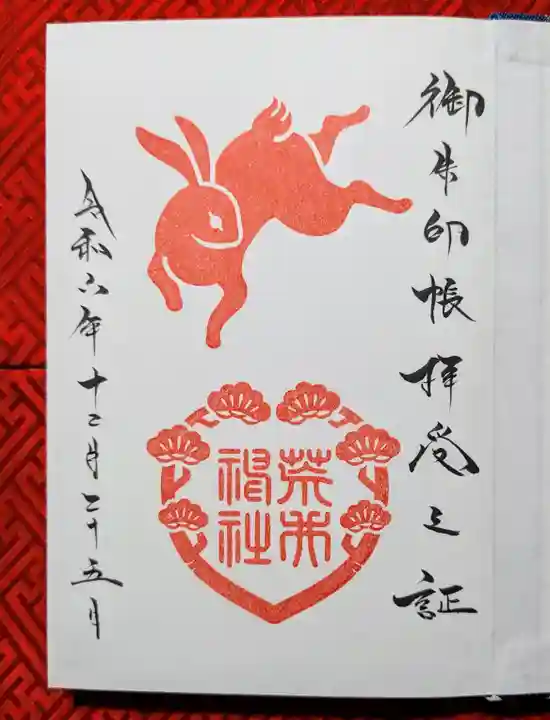 御朱印帳拝受之証
荒井
神社
令和六年十二月二十五日